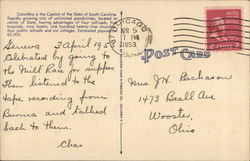 Columbia is the Capitol of the State of South Carolina.
Rapidly growing city of unlimited possibilities, located in
center of State, having advantages of four railroads, three
hospitals, nine hotels, one hundred twenty five churches,
four public schools and six colleges. Estimated population
62,000.
CHICAGO
APR 5
7 PM
1953
POST CARD
Geneva 3 April 1953
Celebrated by going to
the Mill Race for supper
Then listened to the
tape recording from
Burma and talked
back to them.
Chas
Mrs. J.H. Dickason
1473 Beall Ave
Wooster,
Ohio